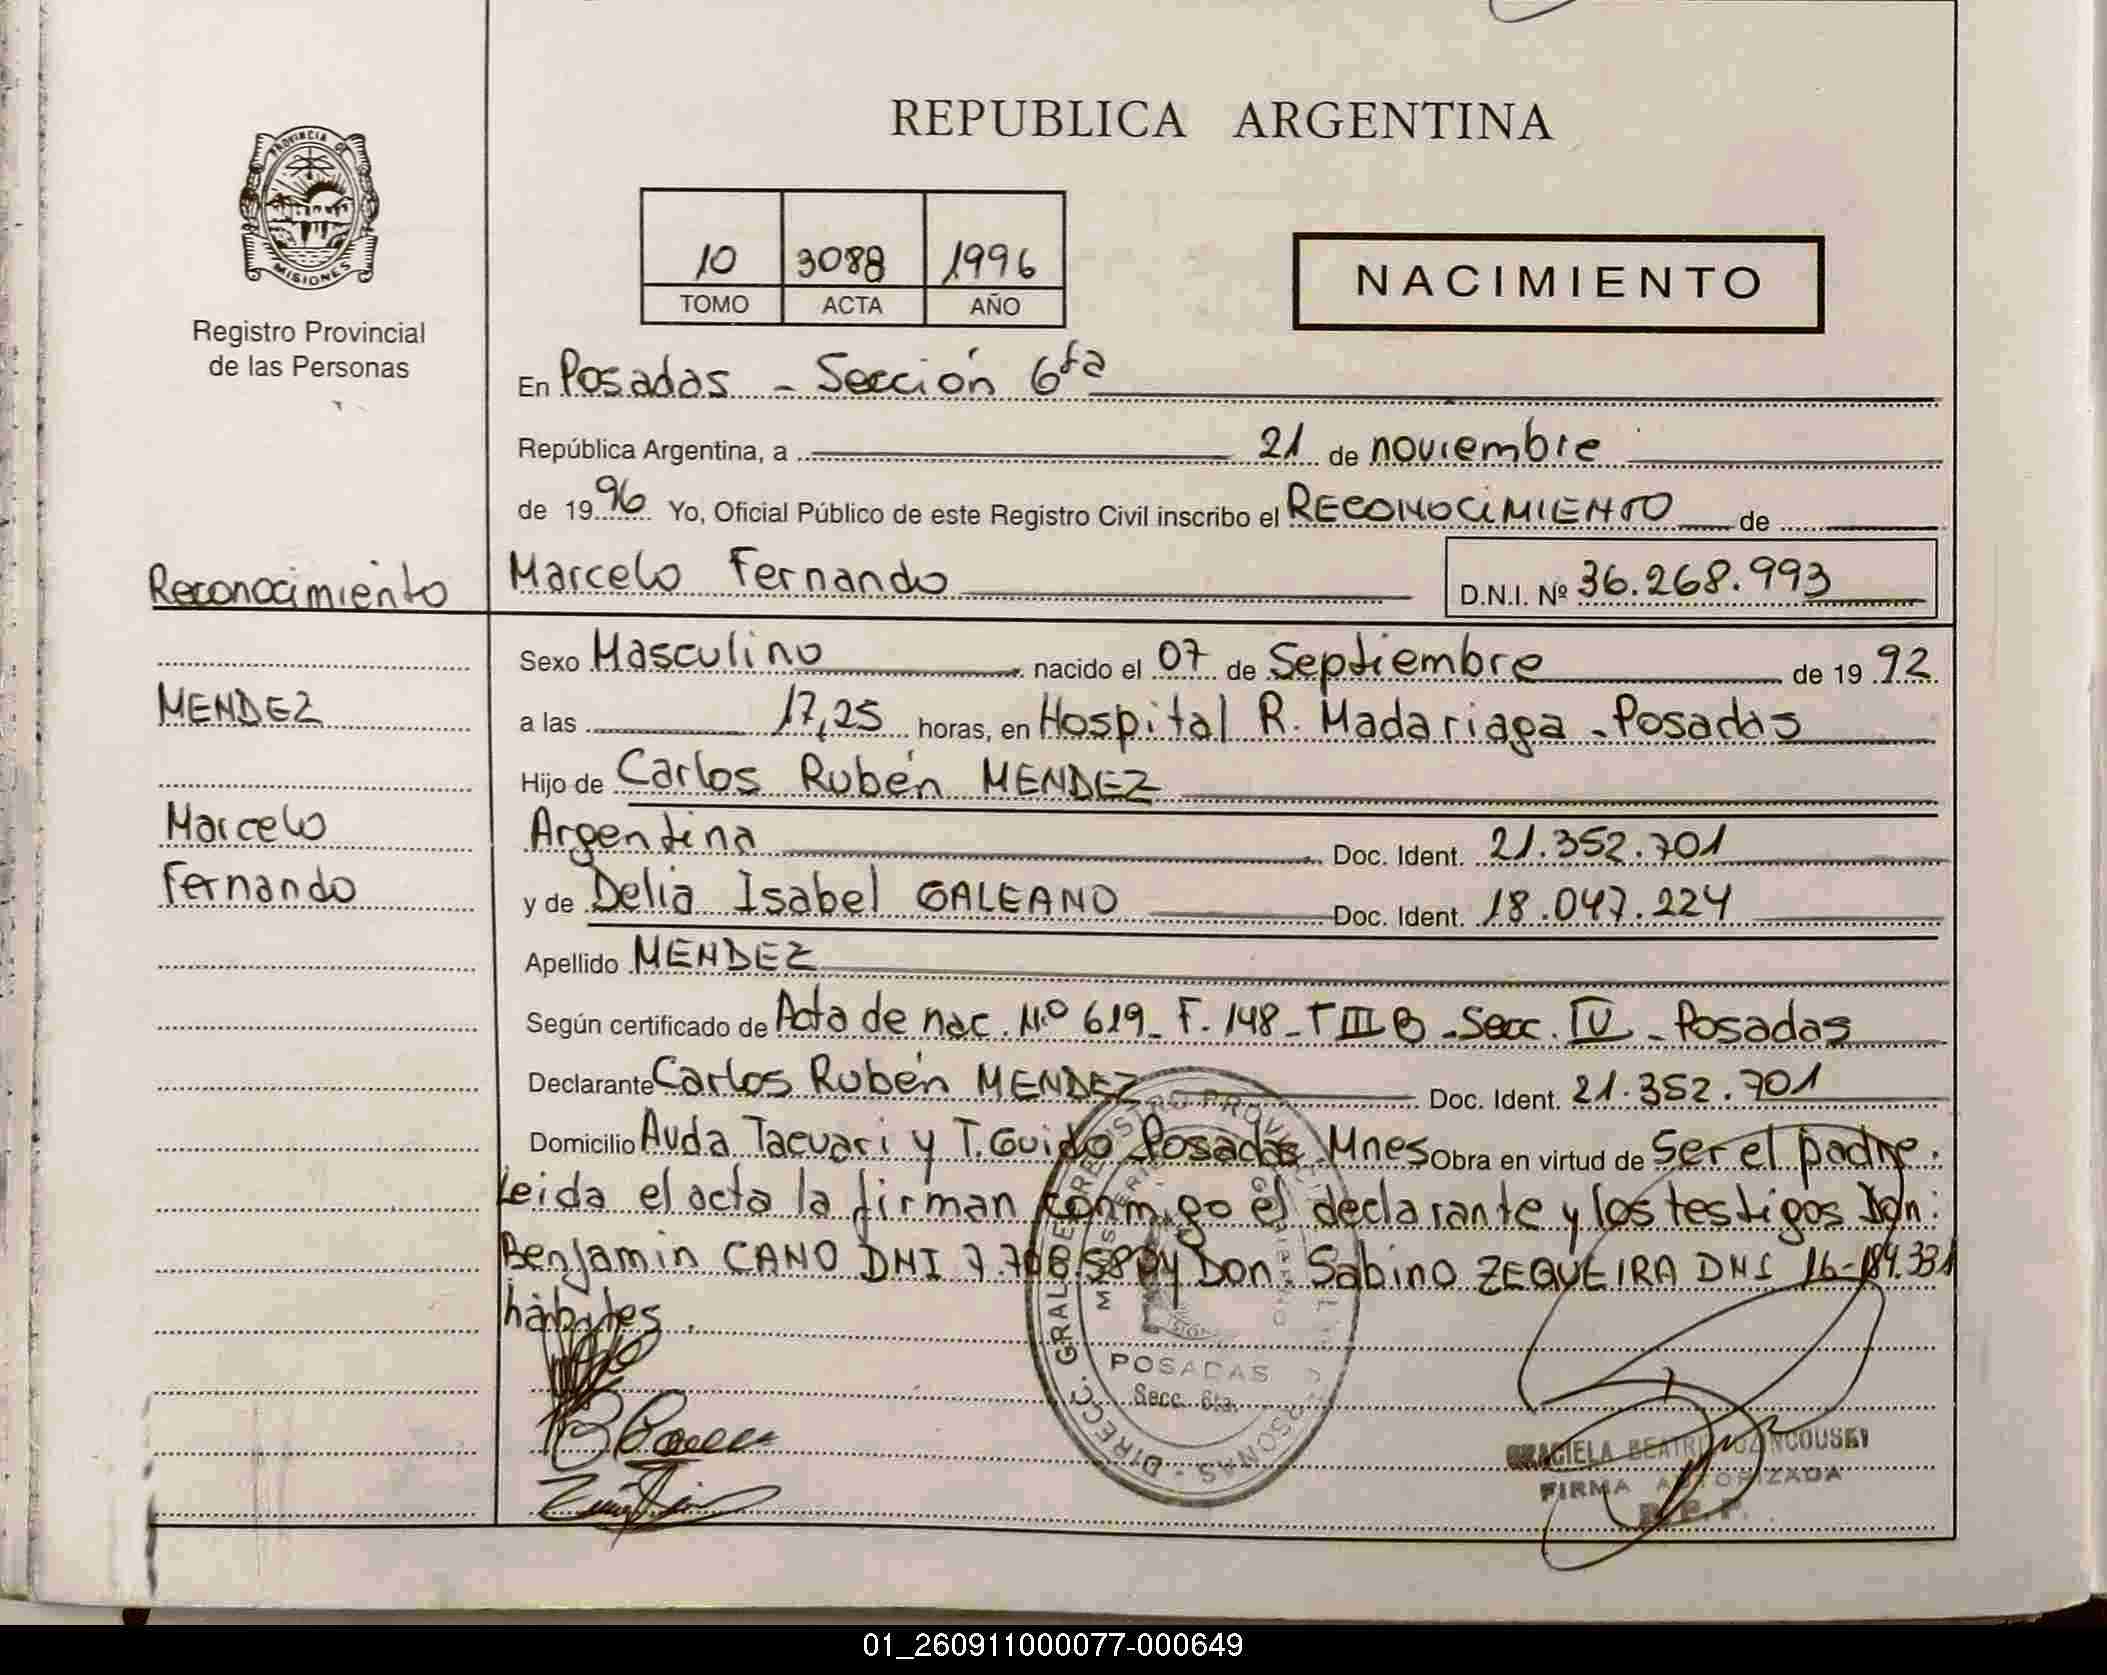 REPUBLICA ARGENTINA
PROVINCIA DE
MISIONES
Registro Provincial
de las Personas
10 3088 1996
TOMO ACTA AÑO
NACIMIENTO
En Posadas - Sección 6ta
República Argentina, a 21 de noviembre
de 1996 Yo, Oficial Público de este Registro Civil inscribo el RECONOCIMIENTO de
Marcelo Fernando D.N.I. Nº 36.268.993
Reconocimiento
MENDEZ
Marcelo
Fernando
Sexo Masculino nacido el 07 de Septiembre de 1992.
a las 17,25 horas, en Hospital R. Madariaga - Posadas
Hijo de Carlos Rubén MENDEZ
Argentina Doc. Ident. 21.352.701
y de Delia Isabel GALEANO Doc. Ident. 18.047.224
Apellido MENDEZ
Según certificado de Acta de nac. N.º 619 - F. 148 - T III B - Secc. IV - Posadas
Declarante Carlos Rubén MENDEZ Doc. Ident. 21.352.701
Domicilio Avda Tacuari y T. Guido Posadas Mnes Obra en virtud de Ser el padre.
Leida el acta la firman conmigo el declarante y los testigos Don:
Benjamin CANO DNI y Don: Sabino ZEQUEIRA DNI 16-184.331
hábiles.
DIREC. GRAL. DE REGISTRO PROVINCIAL PERSONAS
POSADAS
Secc. 6ta.
GRACIELA BEATRI
FIRMA AUTORIZADA
R.P.P.
01_260911000077-000649